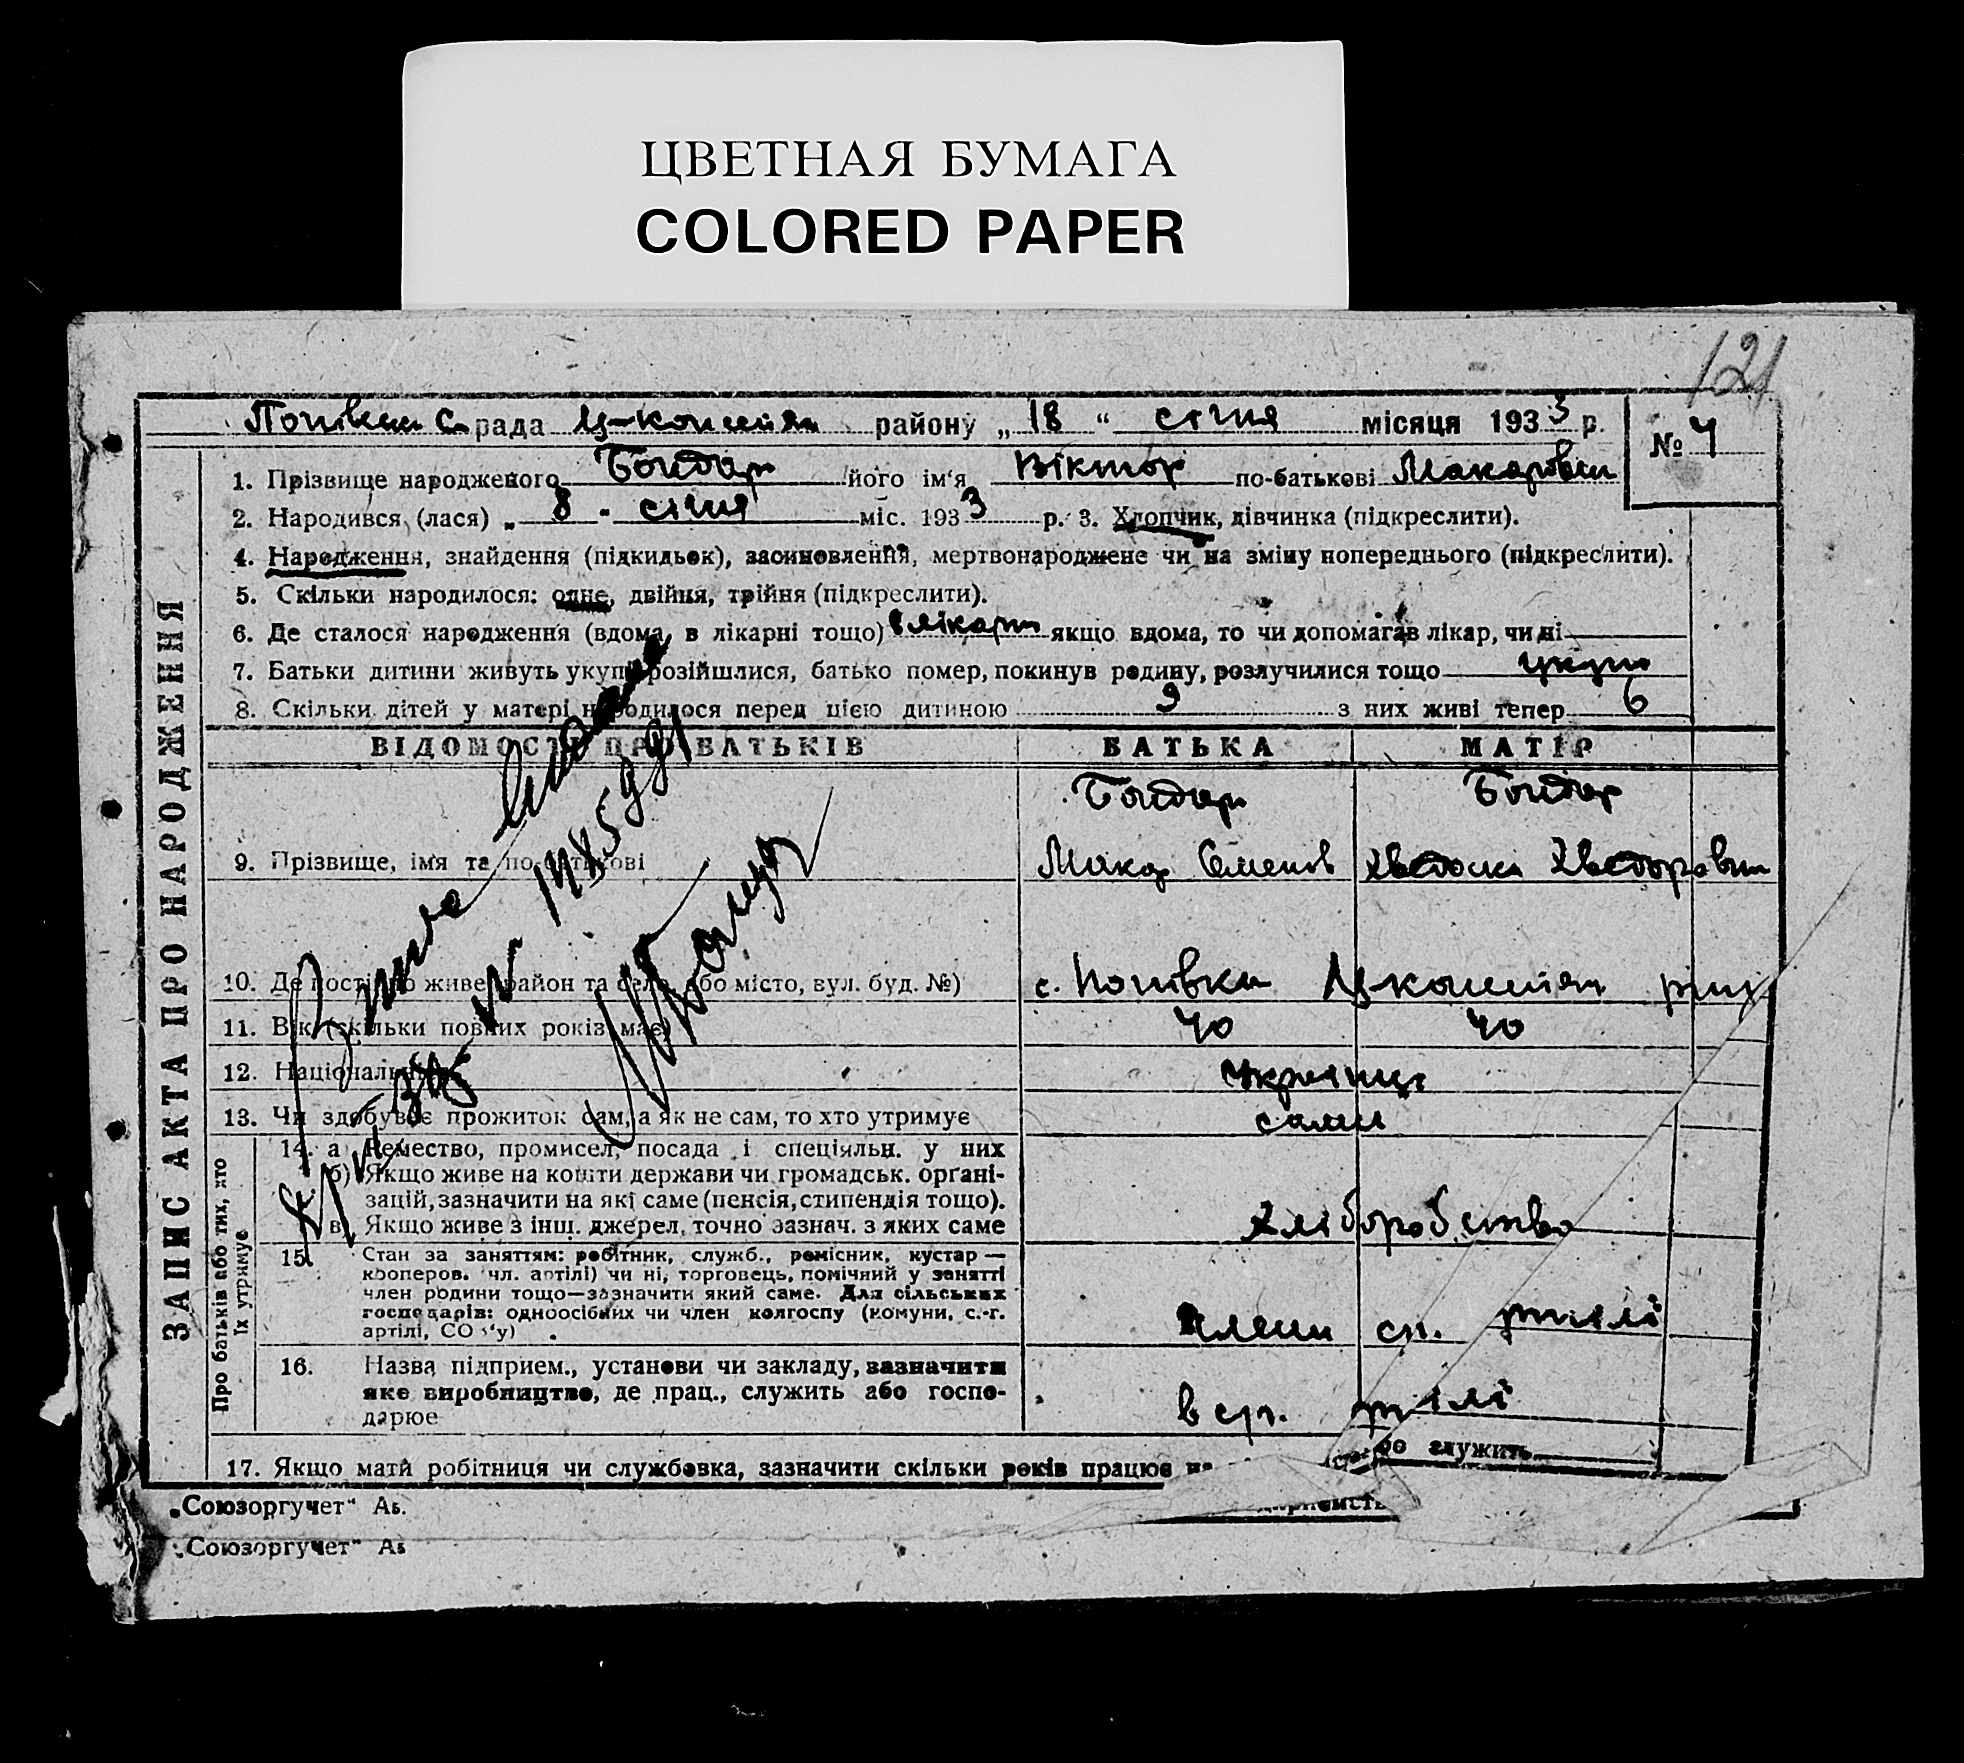 ЦВЕТНАЯ БУМАГА
COLORED PAPER
121
Попівськ С. рада району „18“ січня місяця 1933 р.
№ 4
1. Прізвище народженого Бондар його ім‘я Віктор по-батькові Макарович
2. Народився (лася) „8 - січня міс. 1933 р. 3. Хлопчик, дівчинка (підкреслити).
4. Народження, знайдення (підкидьок), засиновлення, мертвонароджене чи на зміну попереднього (підкреслити).
5. Скільки народилося: одне, двійня, трійня (підкреслити).
6. Де сталося народження (вдома, в лікарні тощо) в лікарні якщо вдома, то чи допомагав лікар, чи ні
7. Батьки дитини живуть укупі, розійшлися, батько помер, покинув родину, розлучилися тощо укупі
8. Скільки дітей у матері народилося перед цією дитиною 9 з них живі тепер 6
ВІДОМОСТІ ПРО БАТЬКІВ БАТЬКА МАТІР
Бондар Бондар
9. Прізвище, імя та по-батькові Макар Семенов Хведоска Хведоровна
10. Де постійно живе (район та село, або місто, вул. буд. №) с. Попівка
11. Вік (скільки повних років має) 40 40
12. Національність українці
13. Чи здобуває прожиток сам, а як не сам, то хто утримує сами
ЗАПИС АКТА ПРО НАРОДЖЕННЯ
Про батьків або тих, хто їх утримує
14. а) Ремество, промисел, посада і спеціяльн. у них
б) Якщо живе на кошти держави чи громадськ. орґані-
зацій, зазначити на які саме (пенсія, стипендія тощо).
в) Якщо живе з інш. джерел, точно зазнач. з яких саме хліборобство
15. Стан за заняттям: робітник, служб., ремісник, кустар —
кооперов. (чл. артілі) чи ні, торговець, помічний у занятті
член родини тощо—зазначити який саме. Для сільських
господарів: одноосібних чи член колгоспу (комуни, с.-г.
артілі, СОЗ‘у) члени сг. артілі
16. Назва підприєм., установи чи закладу, зазначити
яке виробництво, де прац., служить або госпо-
дарює в сг. артілі
17. Якщо мати робітниця чи службовка, зазначити скільки років працює
служить
„Союзоргучет“ Аб.
„Союзоргучет“ Аб